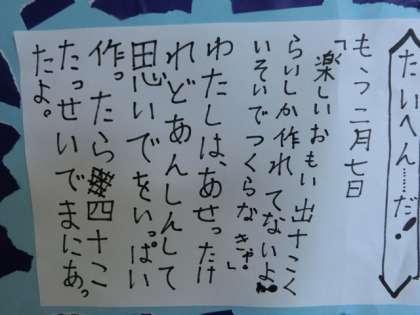 たいへん……だ!
もう二月七日
「楽しいおもい出十こく
らいしか作れてないよ。
いそいでつくらなきゃ。」
わたしは、あせったけ
れどあんしんして
思いでをいっぱい
作ったら四十こ
たっせいでまにあっ
たよ。